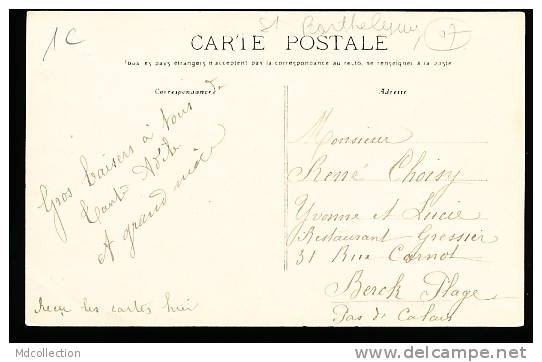 1C
St Barthelemy
07
CARTE POSTALE
Tous les pays étrangers n'acceptent pas la correspondance au recto, se renseigner à la poste
Correspondance
Adresse
Gros baisers à tous de
tante Adèle
A grand mère
Reçu les cartes hier
Monsieur
René Choisy
Yvonne et Lucie
Restaurant Gressier
31 Rue Carnot
Berck Plage
Pas de Calais
Mdcollection
http://www.delcampe.net